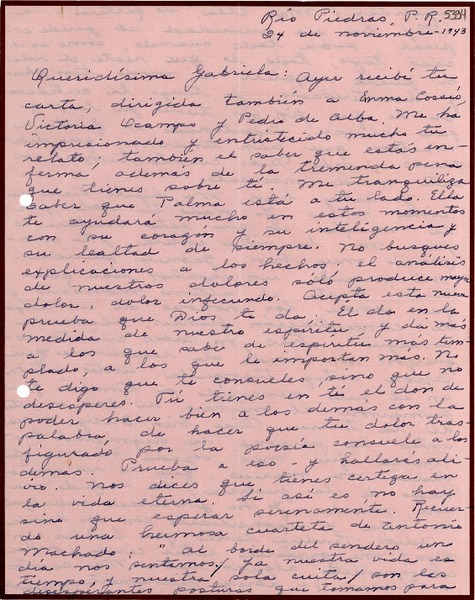 Río Piedras, P. R.
24 de noviembre-1943
Queridísima Gabriela: Ayer recibí tu
carta, dirigida también a Emma Cossío,
Victoria Ocampo y Pedro de Alba. Me ha
impresionado y entristecido mucho tu
relato; también el saber que estás en-
ferma, además de la tremenda pena
que tienes sobre ti. Me tranquiliza
saber que Palma está a tu lado. Ella
te ayudará mucho en estos momentos
con su corazón y su inteligencia y
su lealtad de siempre. No busques
explicaciones a los hechos: el análisis
de nuestros dolores sólo produce mayor
dolor, dolor infecundo. Acepta esta nueva
prueba que Dios te da. Él da en la
medida de nuestro espíritu, y da más
a los que sabe de espíritu más tem-
plado, a los que le importan más. No
te digo que te consueles, sino que no
desesperes. Tú tienes en ti el don de
poder hacer bien a los demás con la
palabra, de hacer que tu dolor tras-
figurado por la poesía consuele a los
demás. Prueba a eso y hallarás ali-
vio. Nos dices que tienes certeza en
la vida eterna. Si así es no hay
sino que esperar serenamente. Recuer-
do una hermosa cuarteta de Antonio
Machado: "Al borde del sendero un
día nos sentamos/ ya nuestra vida es
tiempo, y nuestra sola cuita/ son las
desesperantes posturas que tomamos para